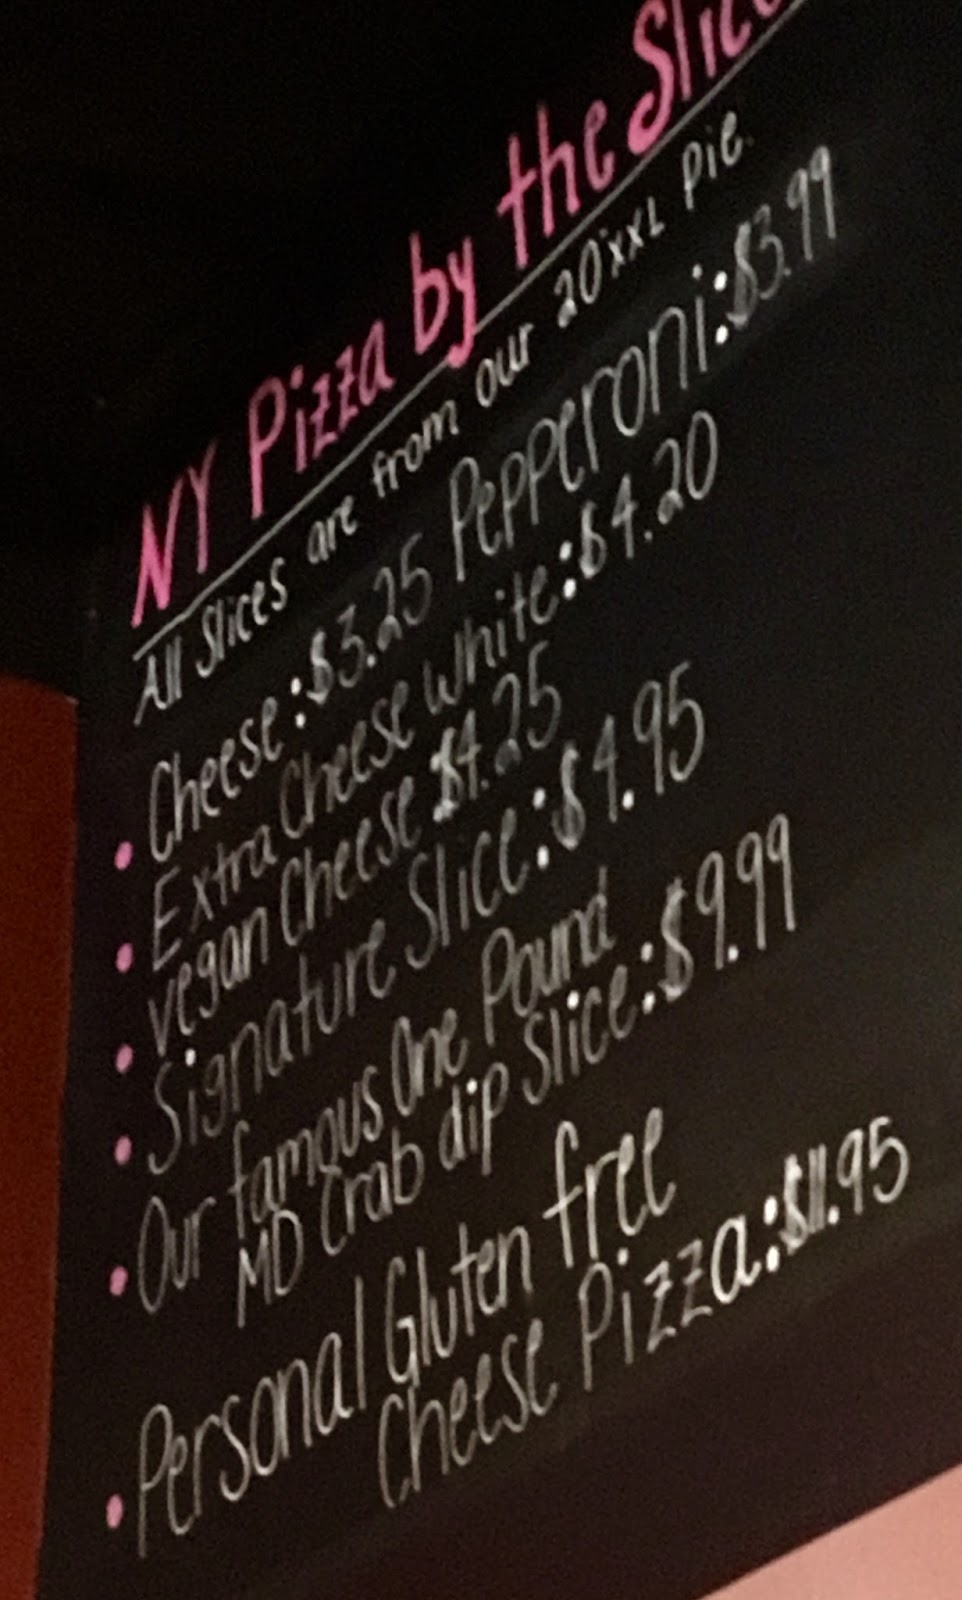 NY Pizza by the Slice
All Slices are from our 20" XXL Pie.
• Cheese:$3.25 Pepperoni:$3.99
• Extra Cheese White:$4.20
• vegan Cheese $4.25
• Signature Slice:$4.95
• Our famous One Pound
MD Crab dip Slice:$9.99
• Personal Gluten free
Cheese Pizza:$11.95